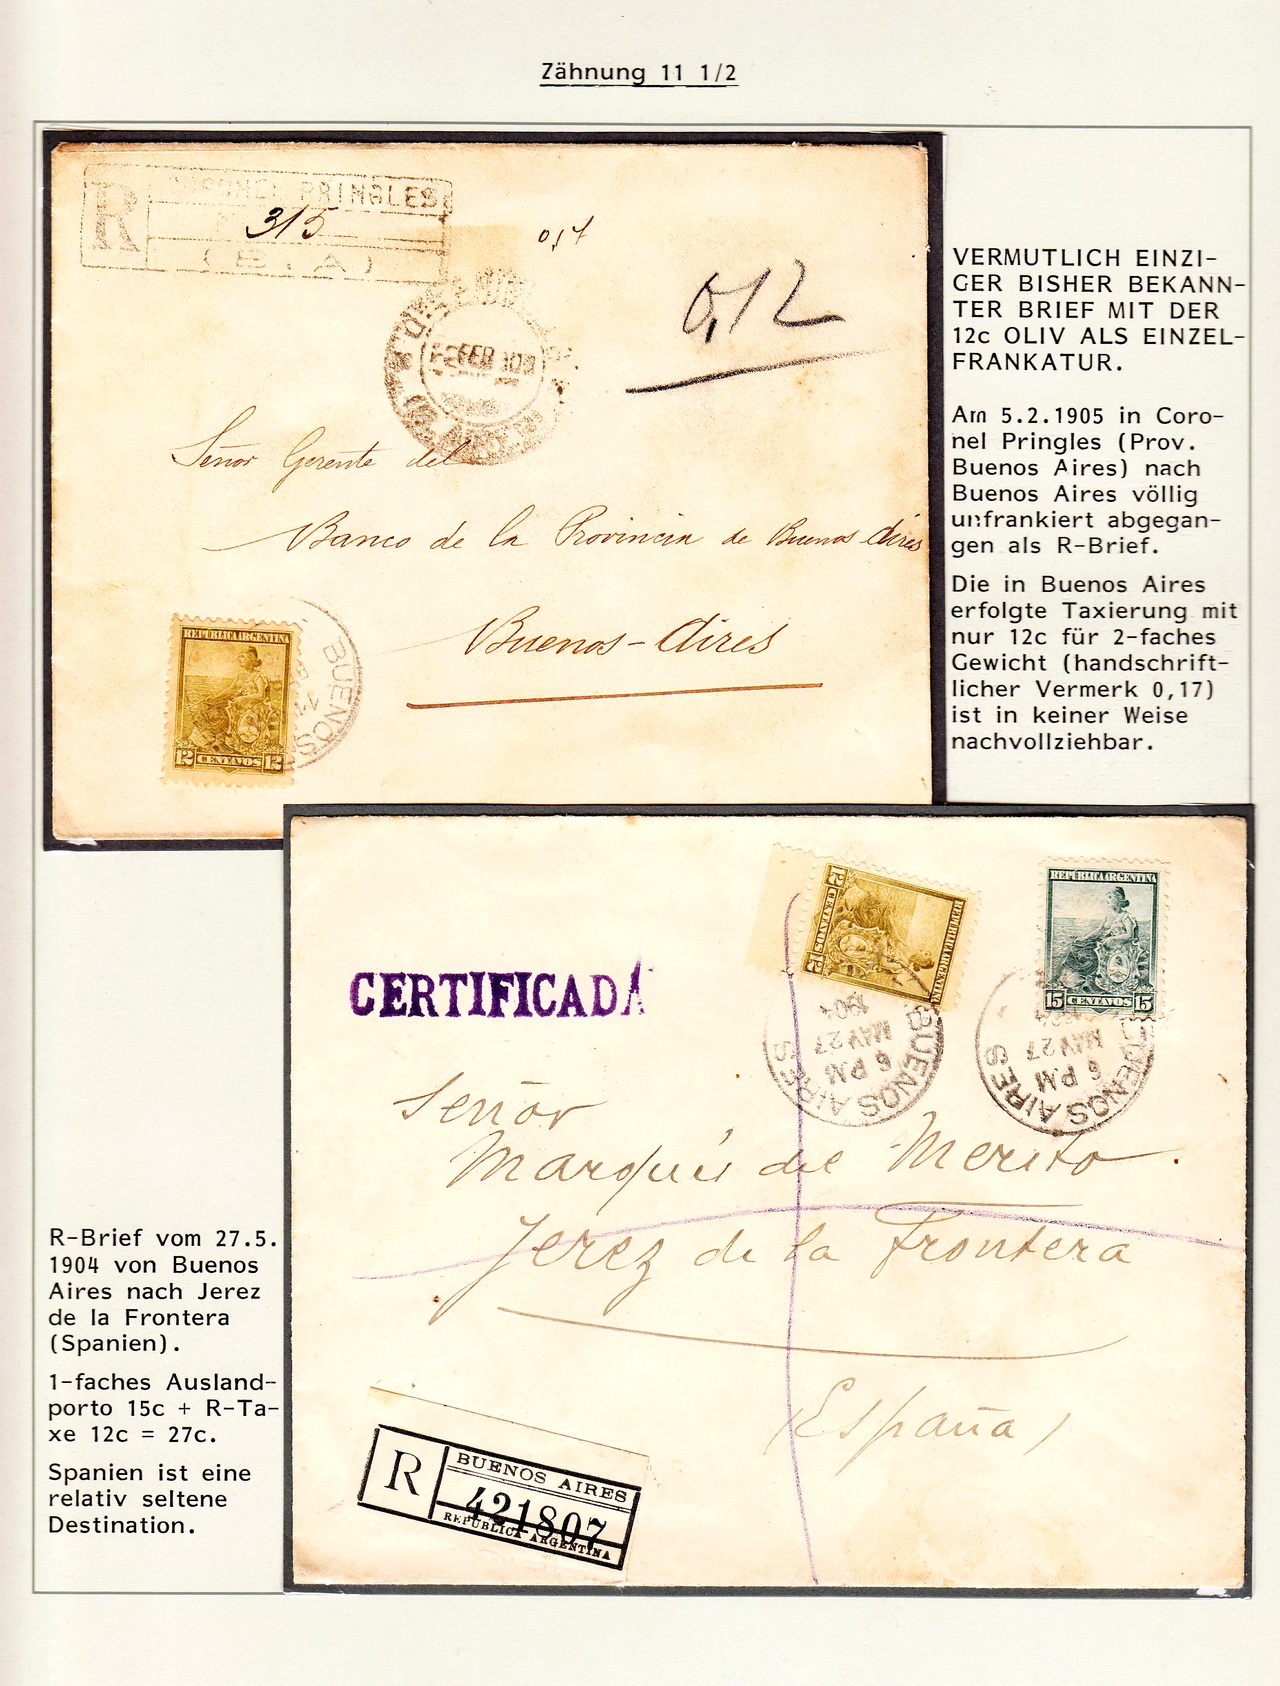 Zähnung 11 1/2
R
CORONEL PRINGLES
315
(B.A)
0,17
0,12
FEB
Señor Gerente del
Banco de la Provincia de Buenos Aires
Buenos-Aires
REPUBLICA ARGENTINA
12 CENTAVOS 12
BUENOS
VERMUTLICH EINZI-
GER BISHER BEKANN-
TER BRIEF MIT DER
12c OLIV ALS EINZEL-
FRANKATUR.
Am 5.2.1905 in Coro-
nel Pringles (Prov.
Buenos Aires) nach
Buenos Aires völlig
unfrankiert abgegan-
gen als R-Brief.
Die in Buenos Aires
erfolgte Taxierung mit
nur 12c für 2-faches
Gewicht (handschrift-
licher Vermerk 0,17)
ist in keiner Weise
nachvollziehbar.
REPUBLICA ARGENTINA
12 CENTAVOS 12
REPUBLICA ARGENTINA
15 CENTAVOS 15
CERTIFICADA
BUENOS AIRES
6 PM
MAY 27
1904
BUENOS AIRES
6 PM
MAY 27
1904
Señor
Marqués del Merito.
Jerez de la Frontera
(España)
R
BUENOS AIRES
421807
REPUBLICA ARGENTINA
R-Brief vom 27.5.
1904 von Buenos
Aires nach Jerez
de la Frontera
(Spanien).
1-faches Ausland-
porto 15c + R-Ta-
xe 12c = 27c.
Spanien ist eine
relativ seltene
Destination.